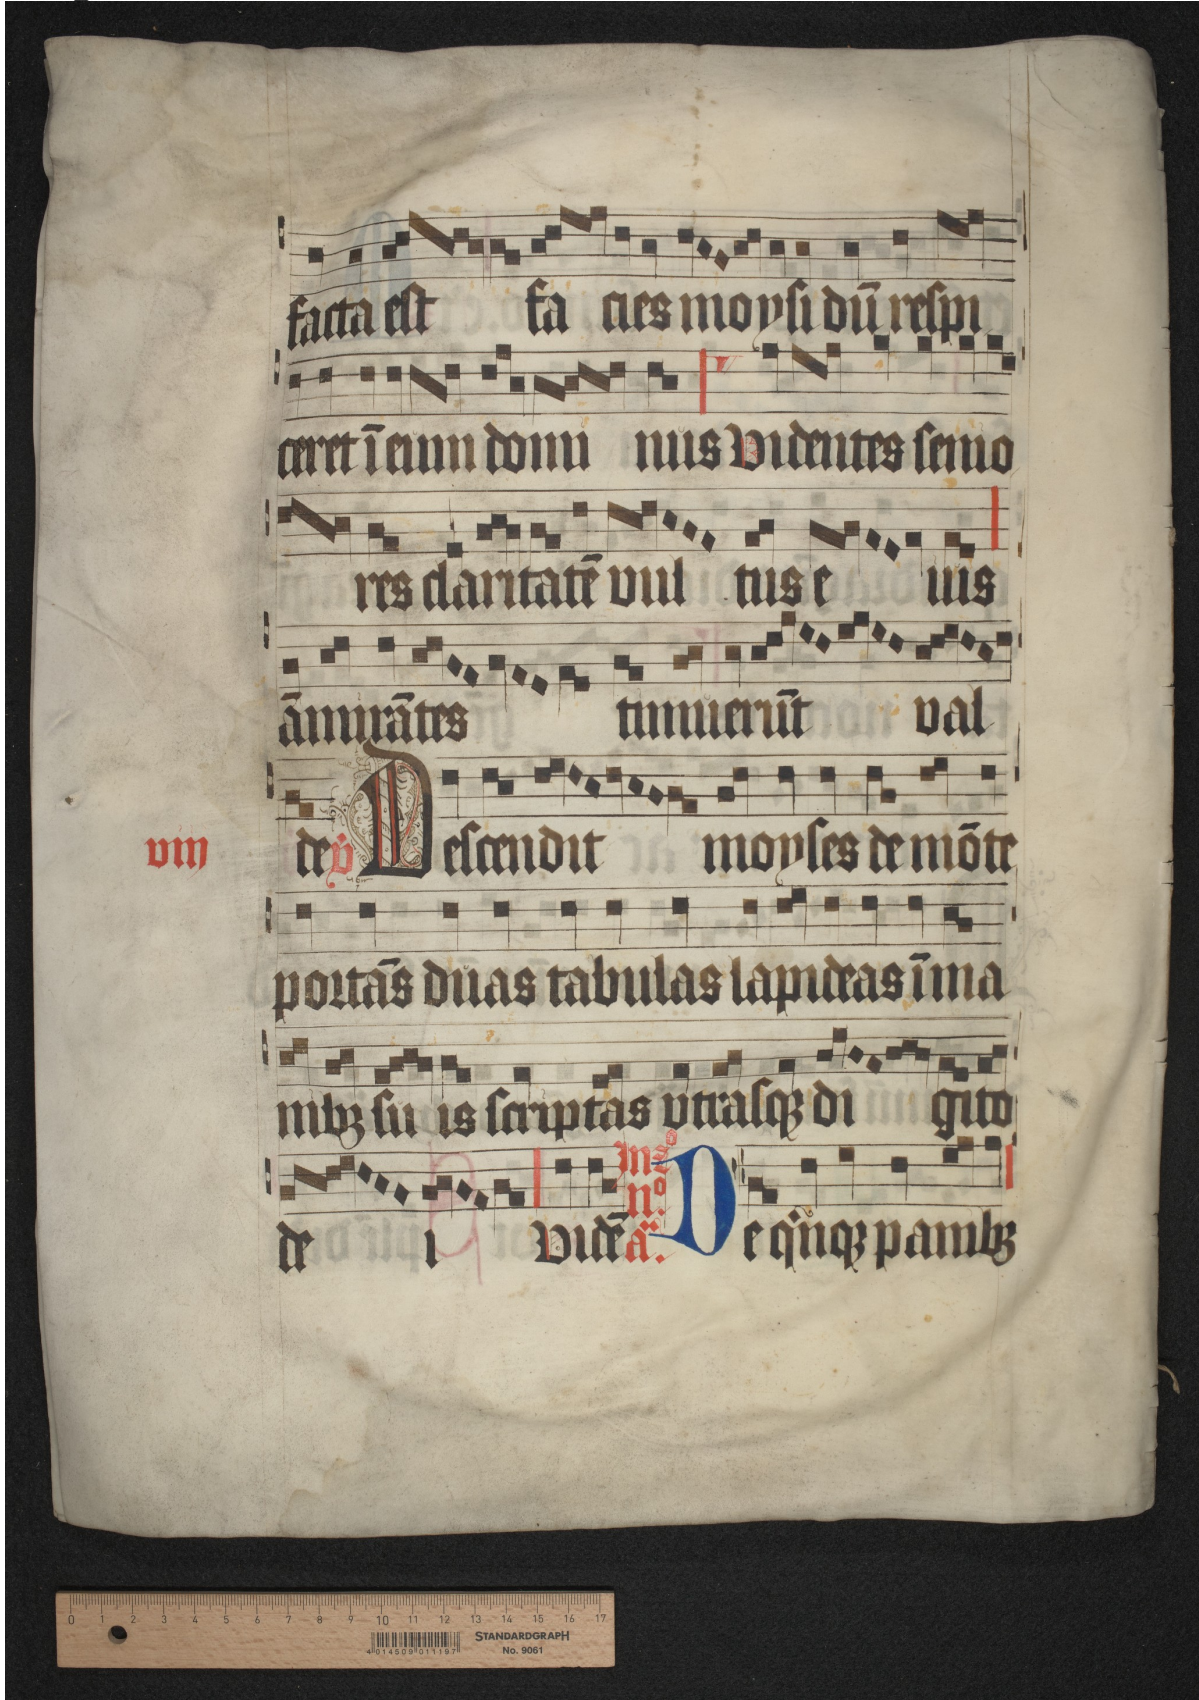 facta est fa cies moysi dū respi
ceret ī eum domi nus Videntes senio
res claritatē vul tus e ius
āmirātes timuerūt val
viii de v Descendit moyses de mōte
portās duas tabulas lapideas ī ma
nibꝫ su is scriptas vtrasqꝫ di gito
In eͦ
nͦ.
de i Vidē a. De qͥnqꝫ panibꝫ
0 1 2 3 4 5 6 7 8 9 10 11 12 13 14 15 16 17
STANDARDGRAPH
No. 9061
4 014509 011197